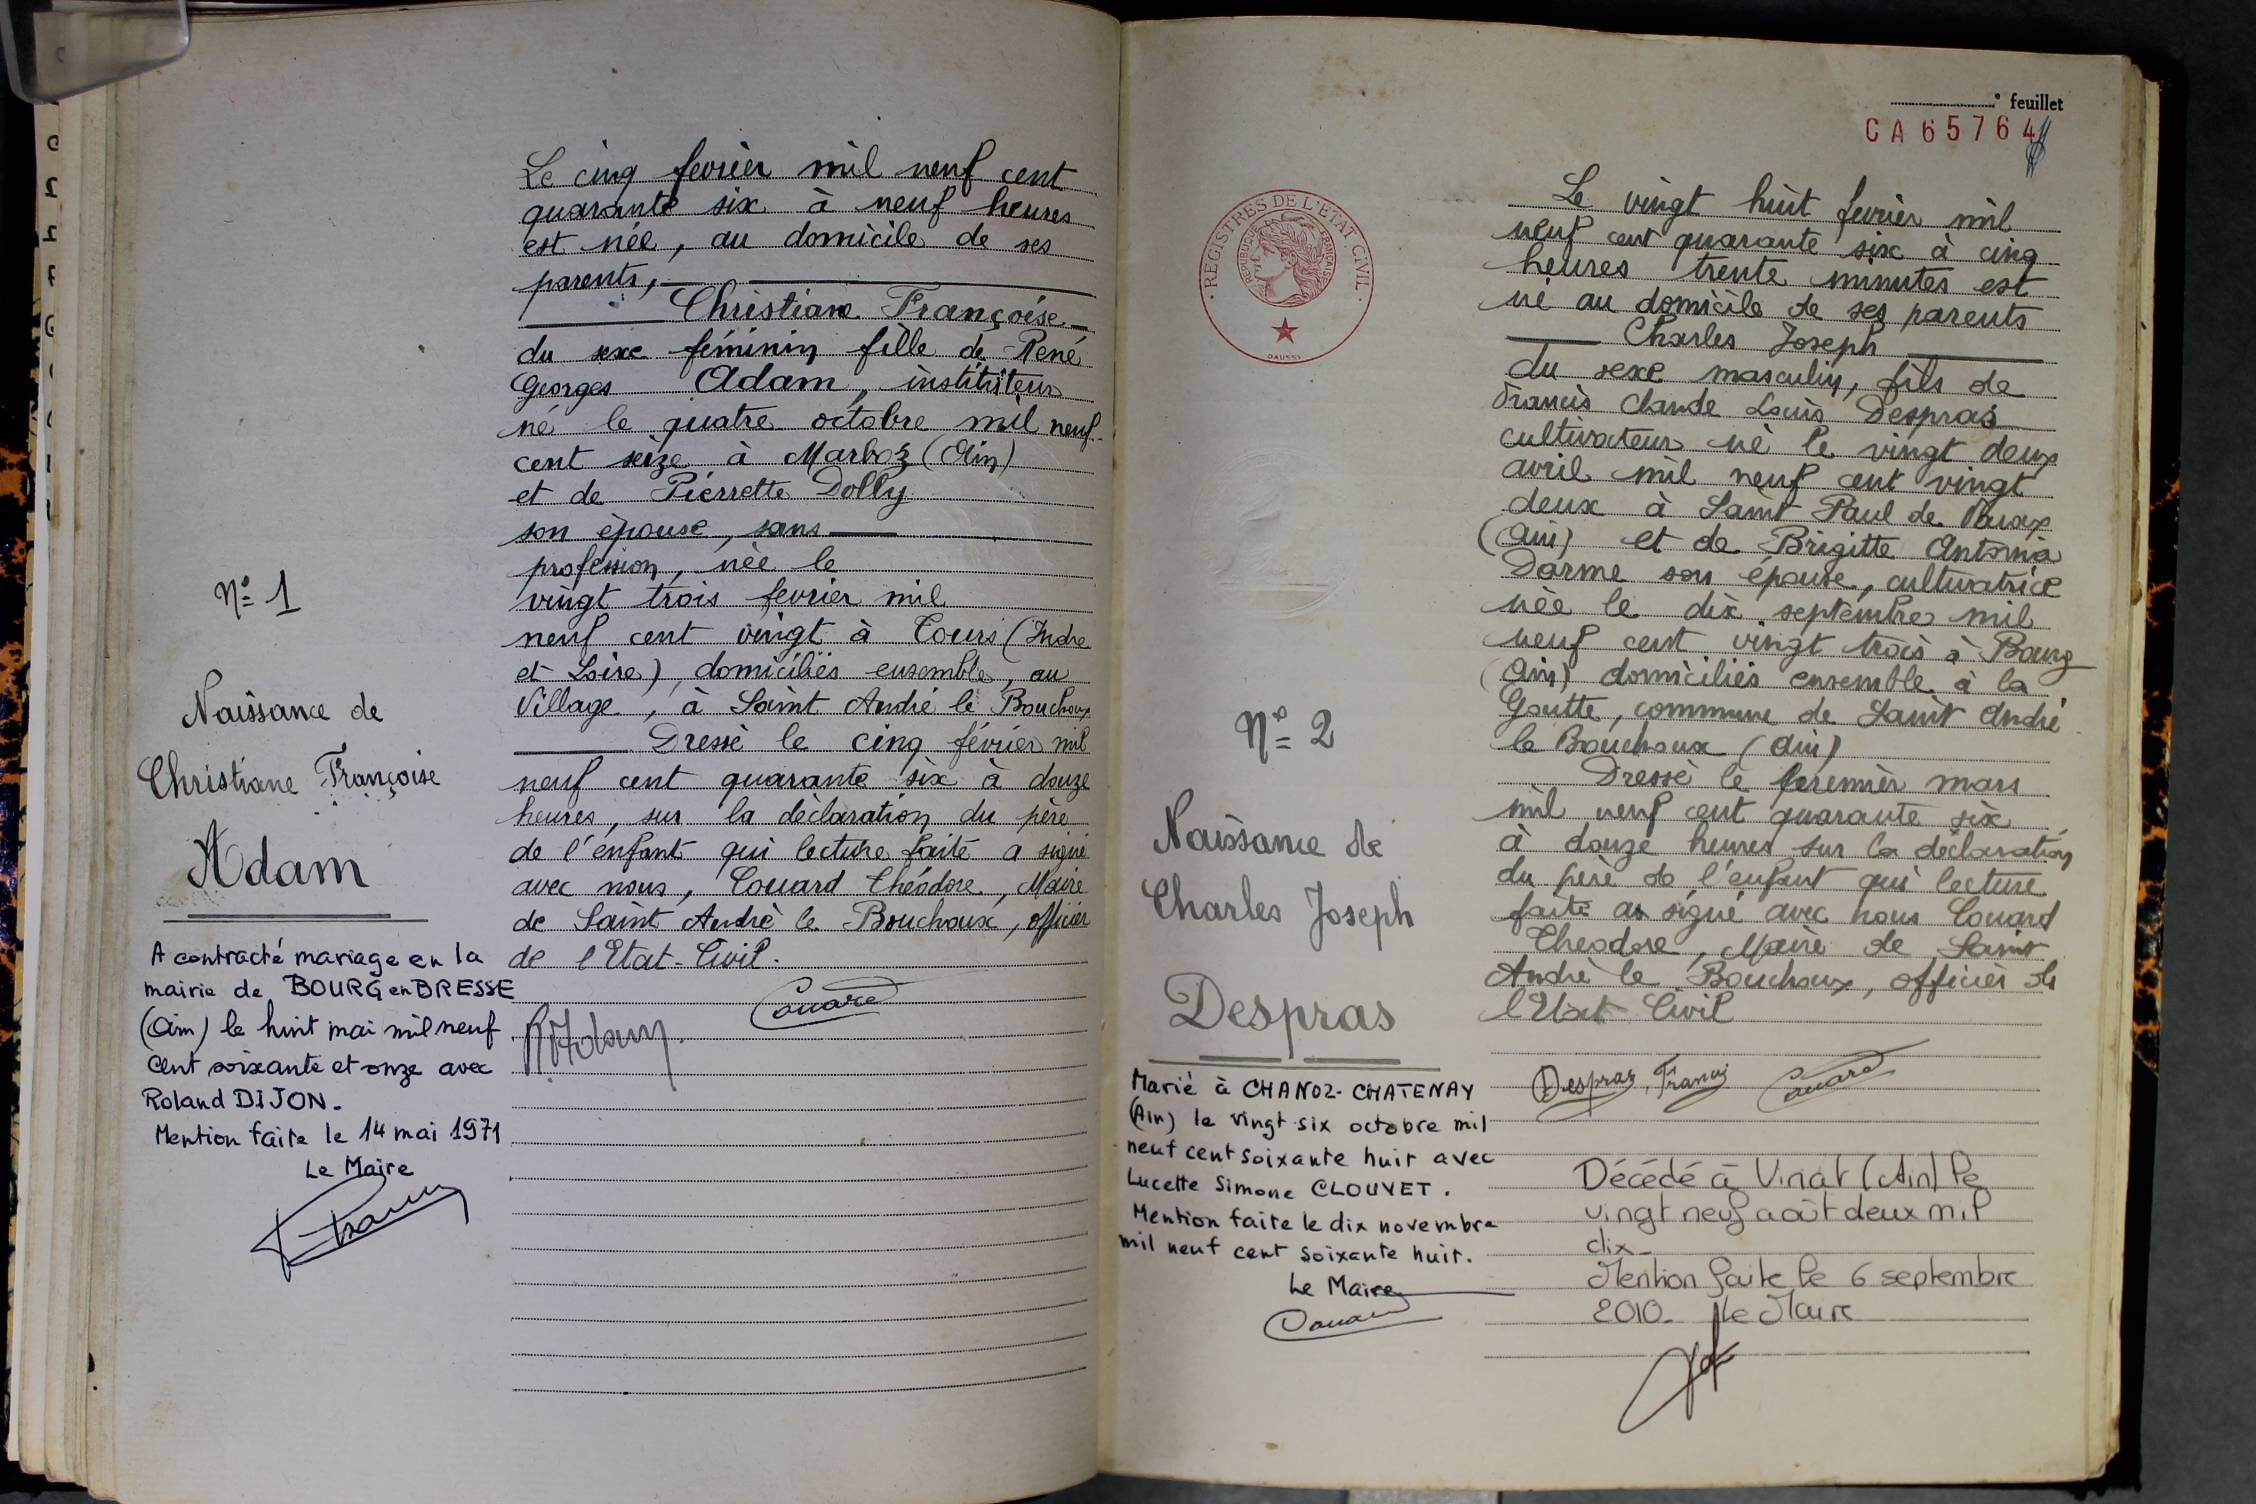 Le cinq fevrier mil neuf cent
quarante six à neuf heures
est née, au domicile de ses
parents,
Christiane Françoise
du sexe féminin fille de René
Georges Adam, instituteur
né le quatre octobre mil neuf
cent seize à Marboz (Ain)
et de Pierrette Dolly
son épouse, sans
profession, née le
vingt trois fevrier mil
neuf cent vingt à Tours (Indre
et Loire), domiciliés ensemble, au
Village, à Saint André le Bouchoux
Dressé le cinq février mil
neuf cent quarante six à douze
heures, sur la déclaration du père
de l'enfant qui lecture faite a signé
avec nous, Couard Théodore, Maire
de Saint André le Bouchoux, officier
de l'Etat-Civil.
R. Adam
Couard
N° 1
Naissance de
Christiane Françoise
Adam
A contracté mariage en la
mairie de BOURG en BRESSE
(Ain) le huit mai mil neuf
cent soixante et onze avec
Roland DIJON.
Mention faite le 14 mai 1971
Le Maire
° feuillet
CA65764
REGISTRES DE L'ETAT CIVIL
REPUBLIQUE FRANÇAISE
DAUSSY
Le vingt huit fevrier mil
neuf cent quarante six à cinq
heures trente minutes est
né au domicile de ses parents
Charles Joseph
du sexe masculin, fils de
Francis Claude Louis Despras
cultivateur né le vingt deux
avril mil neuf cent vingt
deux à Saint Paul de Varax
(Ain) et de Brigitte Antonia
Darme son épouse, cultivatrice
née le dix septembre mil
neuf cent vingt trois à Bourg
(Ain) domiciliés ensemble à la
Goutte, commune de Saint André
le Bouchoux (Ain)
Dressé le premier mars
mil neuf cent quarante six
à douze heures sur la déclaration
du père de l'enfant qui lecture
faite a signé avec nous Couard
Théodore, Maire de Saint
André le Bouchoux, officier de
l'Etat Civil
Despras Francis
Couard
N° 2
Naissance de
Charles Joseph
Despras
Marié à CHANOZ-CHATENAY
(Ain) le vingt six octobre mil
neuf cent soixante huit avec
Lucette Simone CLOUVET.
Mention faite le dix novembre
mil neuf cent soixante huit.
Le Maire
Couard
Décédé à Viriat (Ain) le
vingt neuf août deux mil
dix
Mention faite le 6 septembre
2010. Le Maire